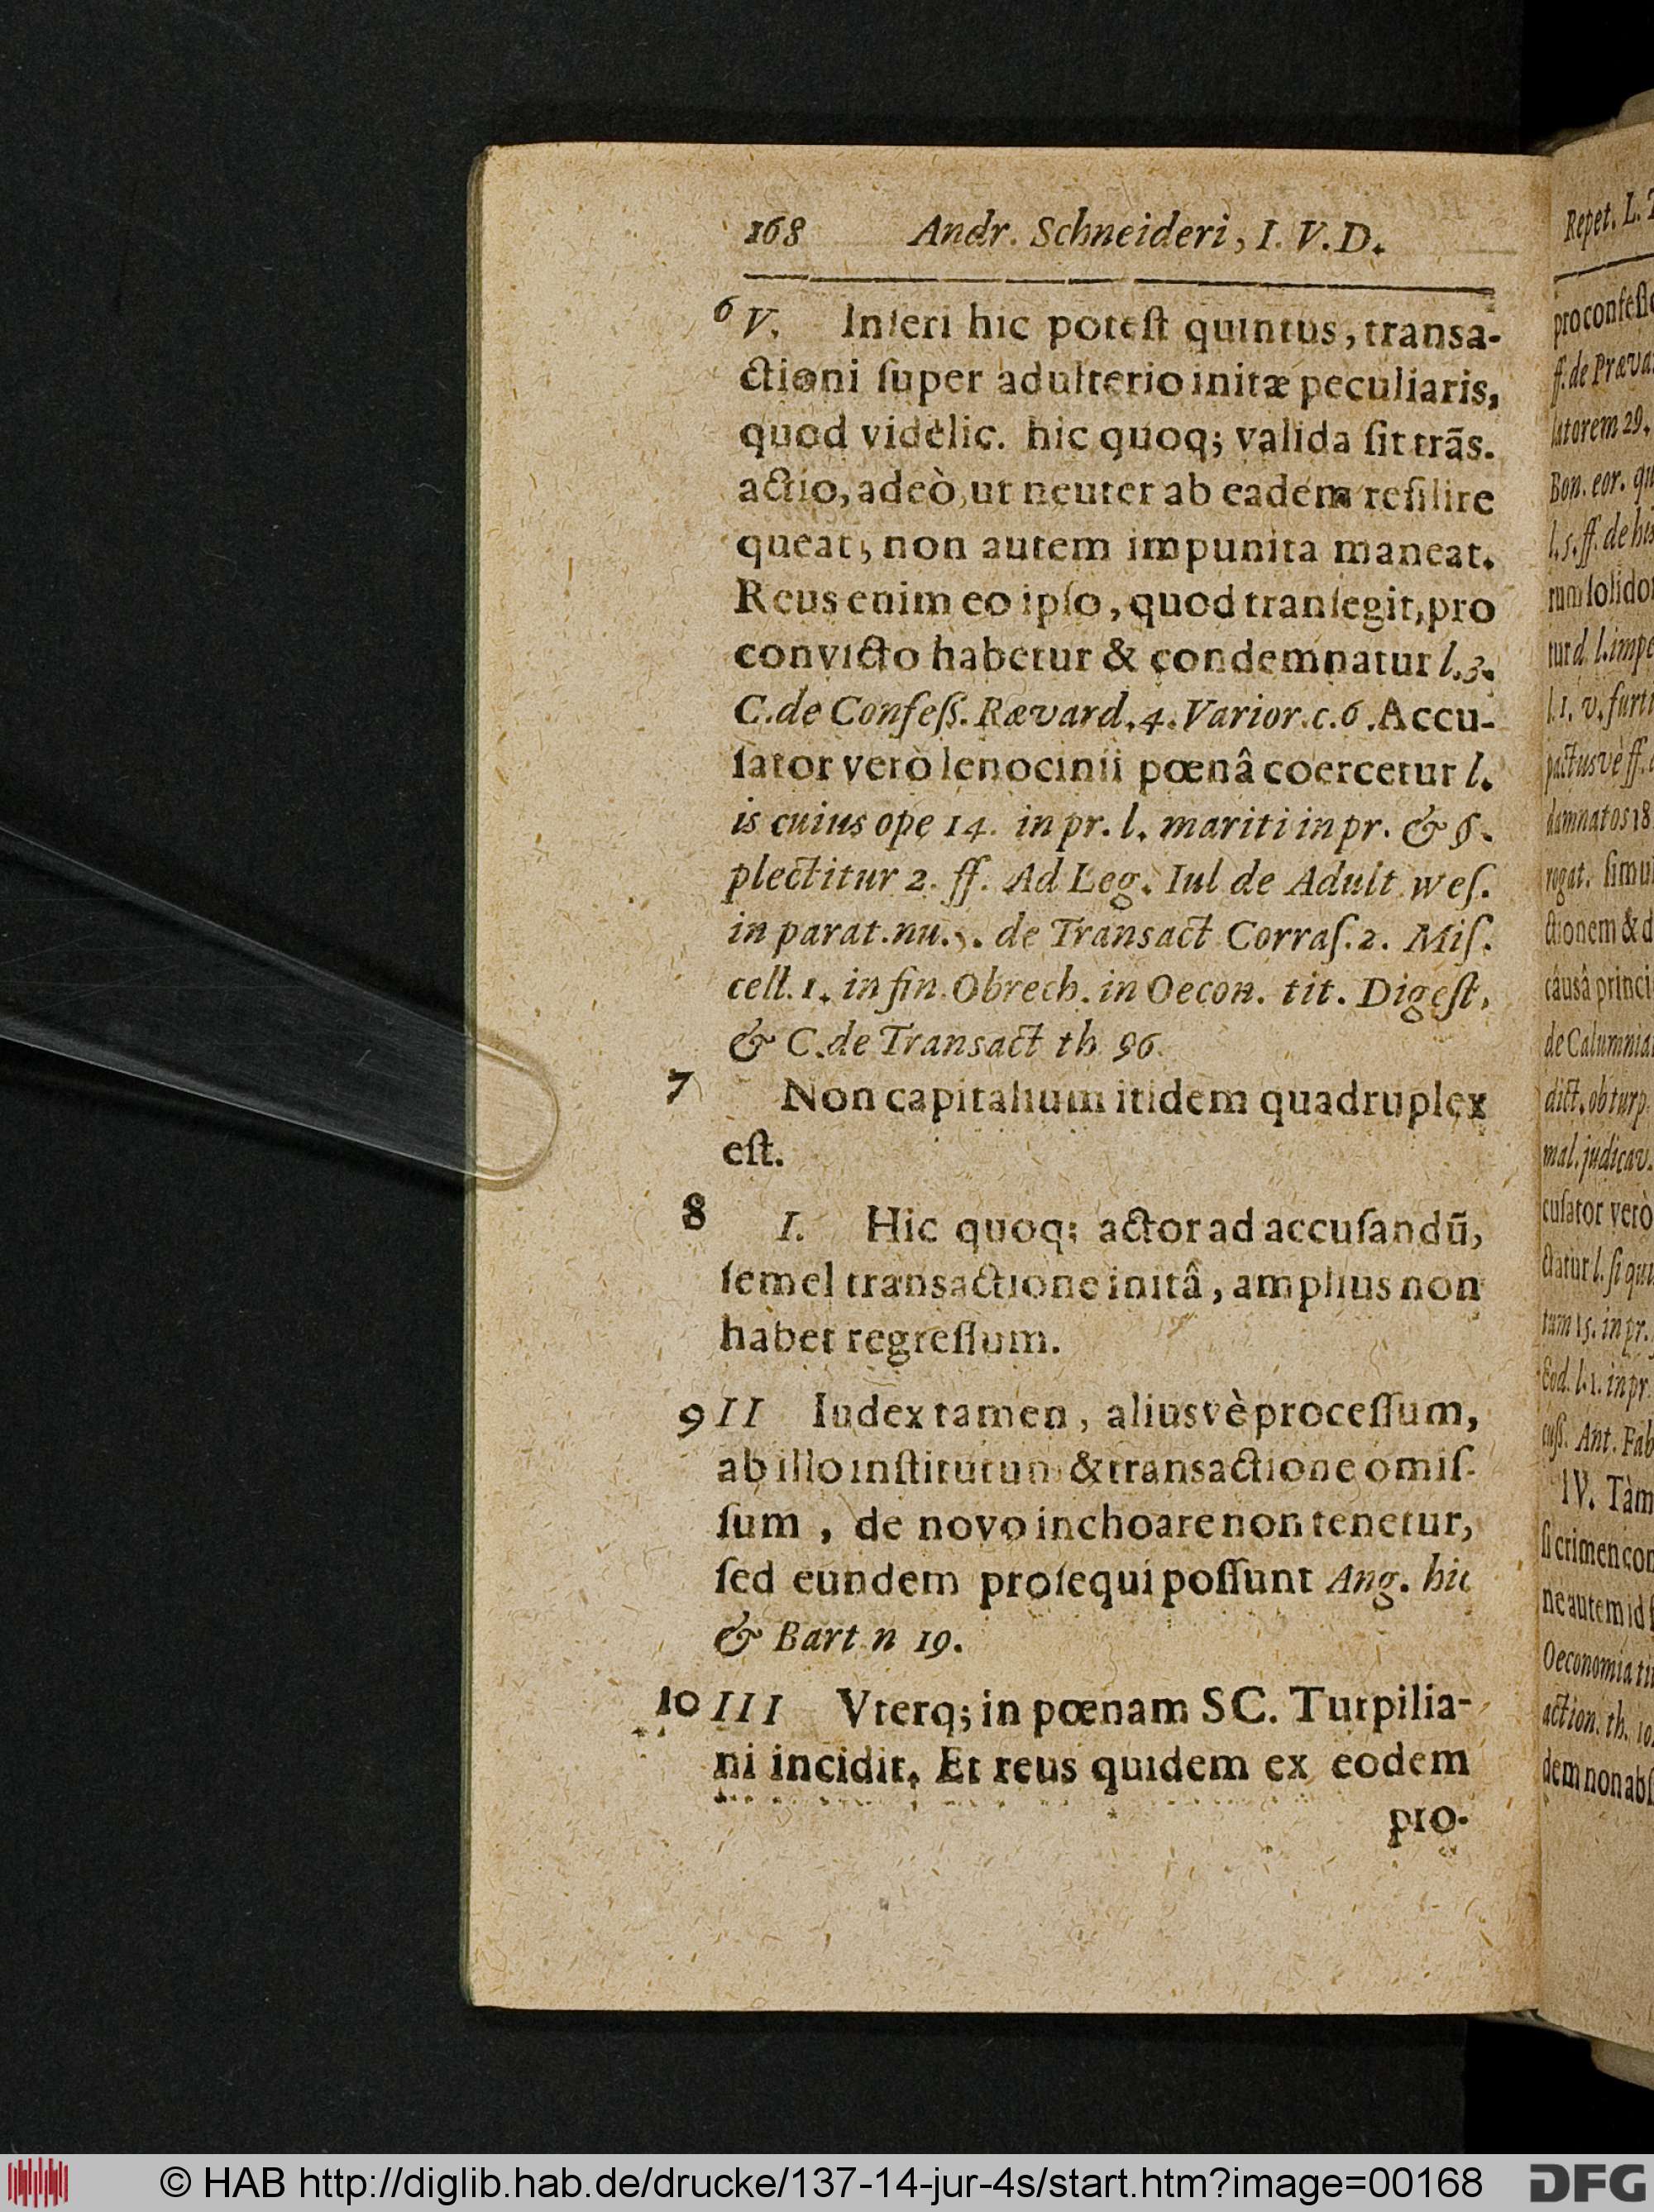 168 Andr. Schneideri, I. V. D.
6 V. Inſeri hic poteſt quintus, transa-
ctioni ſuper adulterio initæ peculiaris,
quod videlic. hic quoq; valida ſit trãs.
actio, adeò, ut neuter ab eadem reſilire
queat, non autem impunita maneat.
Reus enim eo ipſo, quod tranſegit, pro
convicto habetur & condemnatur l. 3.
C. de Confeſſ. Rævard. 4. Varior. c. 6. Accu-
ſator verò lenocinii pœnâ coercetur l.
is cuius ope 14. in pr. l. mariti in pr. & §.
plectitur 2. ff. Ad Leg. Iul de Adult weſ.
in parat. nu. de Transact Corraſ. 2. Miſ.
cell. 1. in fin. Obrech. in Oecon. tit. Digeſt,
& C. de Transact th 96.
7 Non capitalium itidem quadruplex
eſt.
8 I. Hic quoq; actor ad accuſandũ,
ſemel transactione initâ, amplius non
habet regreſſum.
9 II Iudex tamen, aliusvè proceſſum,
ab illo inſtitutum & transactione omiſ-
ſum, de novo inchoare non tenetur,
ſed eundem proſequi poſſunt Ang. hic
& Bart n 19.
10 III Vterq; in pœnam SC. Turpilia-
ni incidit. Et reus quidem ex eodem
pro-
Repet. L.
pro confeſſ
ff. de Præva
latorem 29.
Bon. eor. qu
l. 5. ff. de his
rum ſolido
tur d. l. impe
l. 1. v. furti
pactusvè ff.
damnatos 18
rogat. ſimul
ctionem & d
causâ princi
de Calumnia
dict. ob turp.
mal. judicav.
cuſator verò
ctatur l. ſi qui
tum 15. in pr.
Eod. l. 1. in pr
cuſſ. Ant. Fab
IV. Tàm
ſi crimen con
ne autem id
Oeconomia tit
action. th. 10.
dem non abſ
© HAB http://diglib.hab.de/drucke/137-14-jur-4s/start.htm?image=00168
DFG